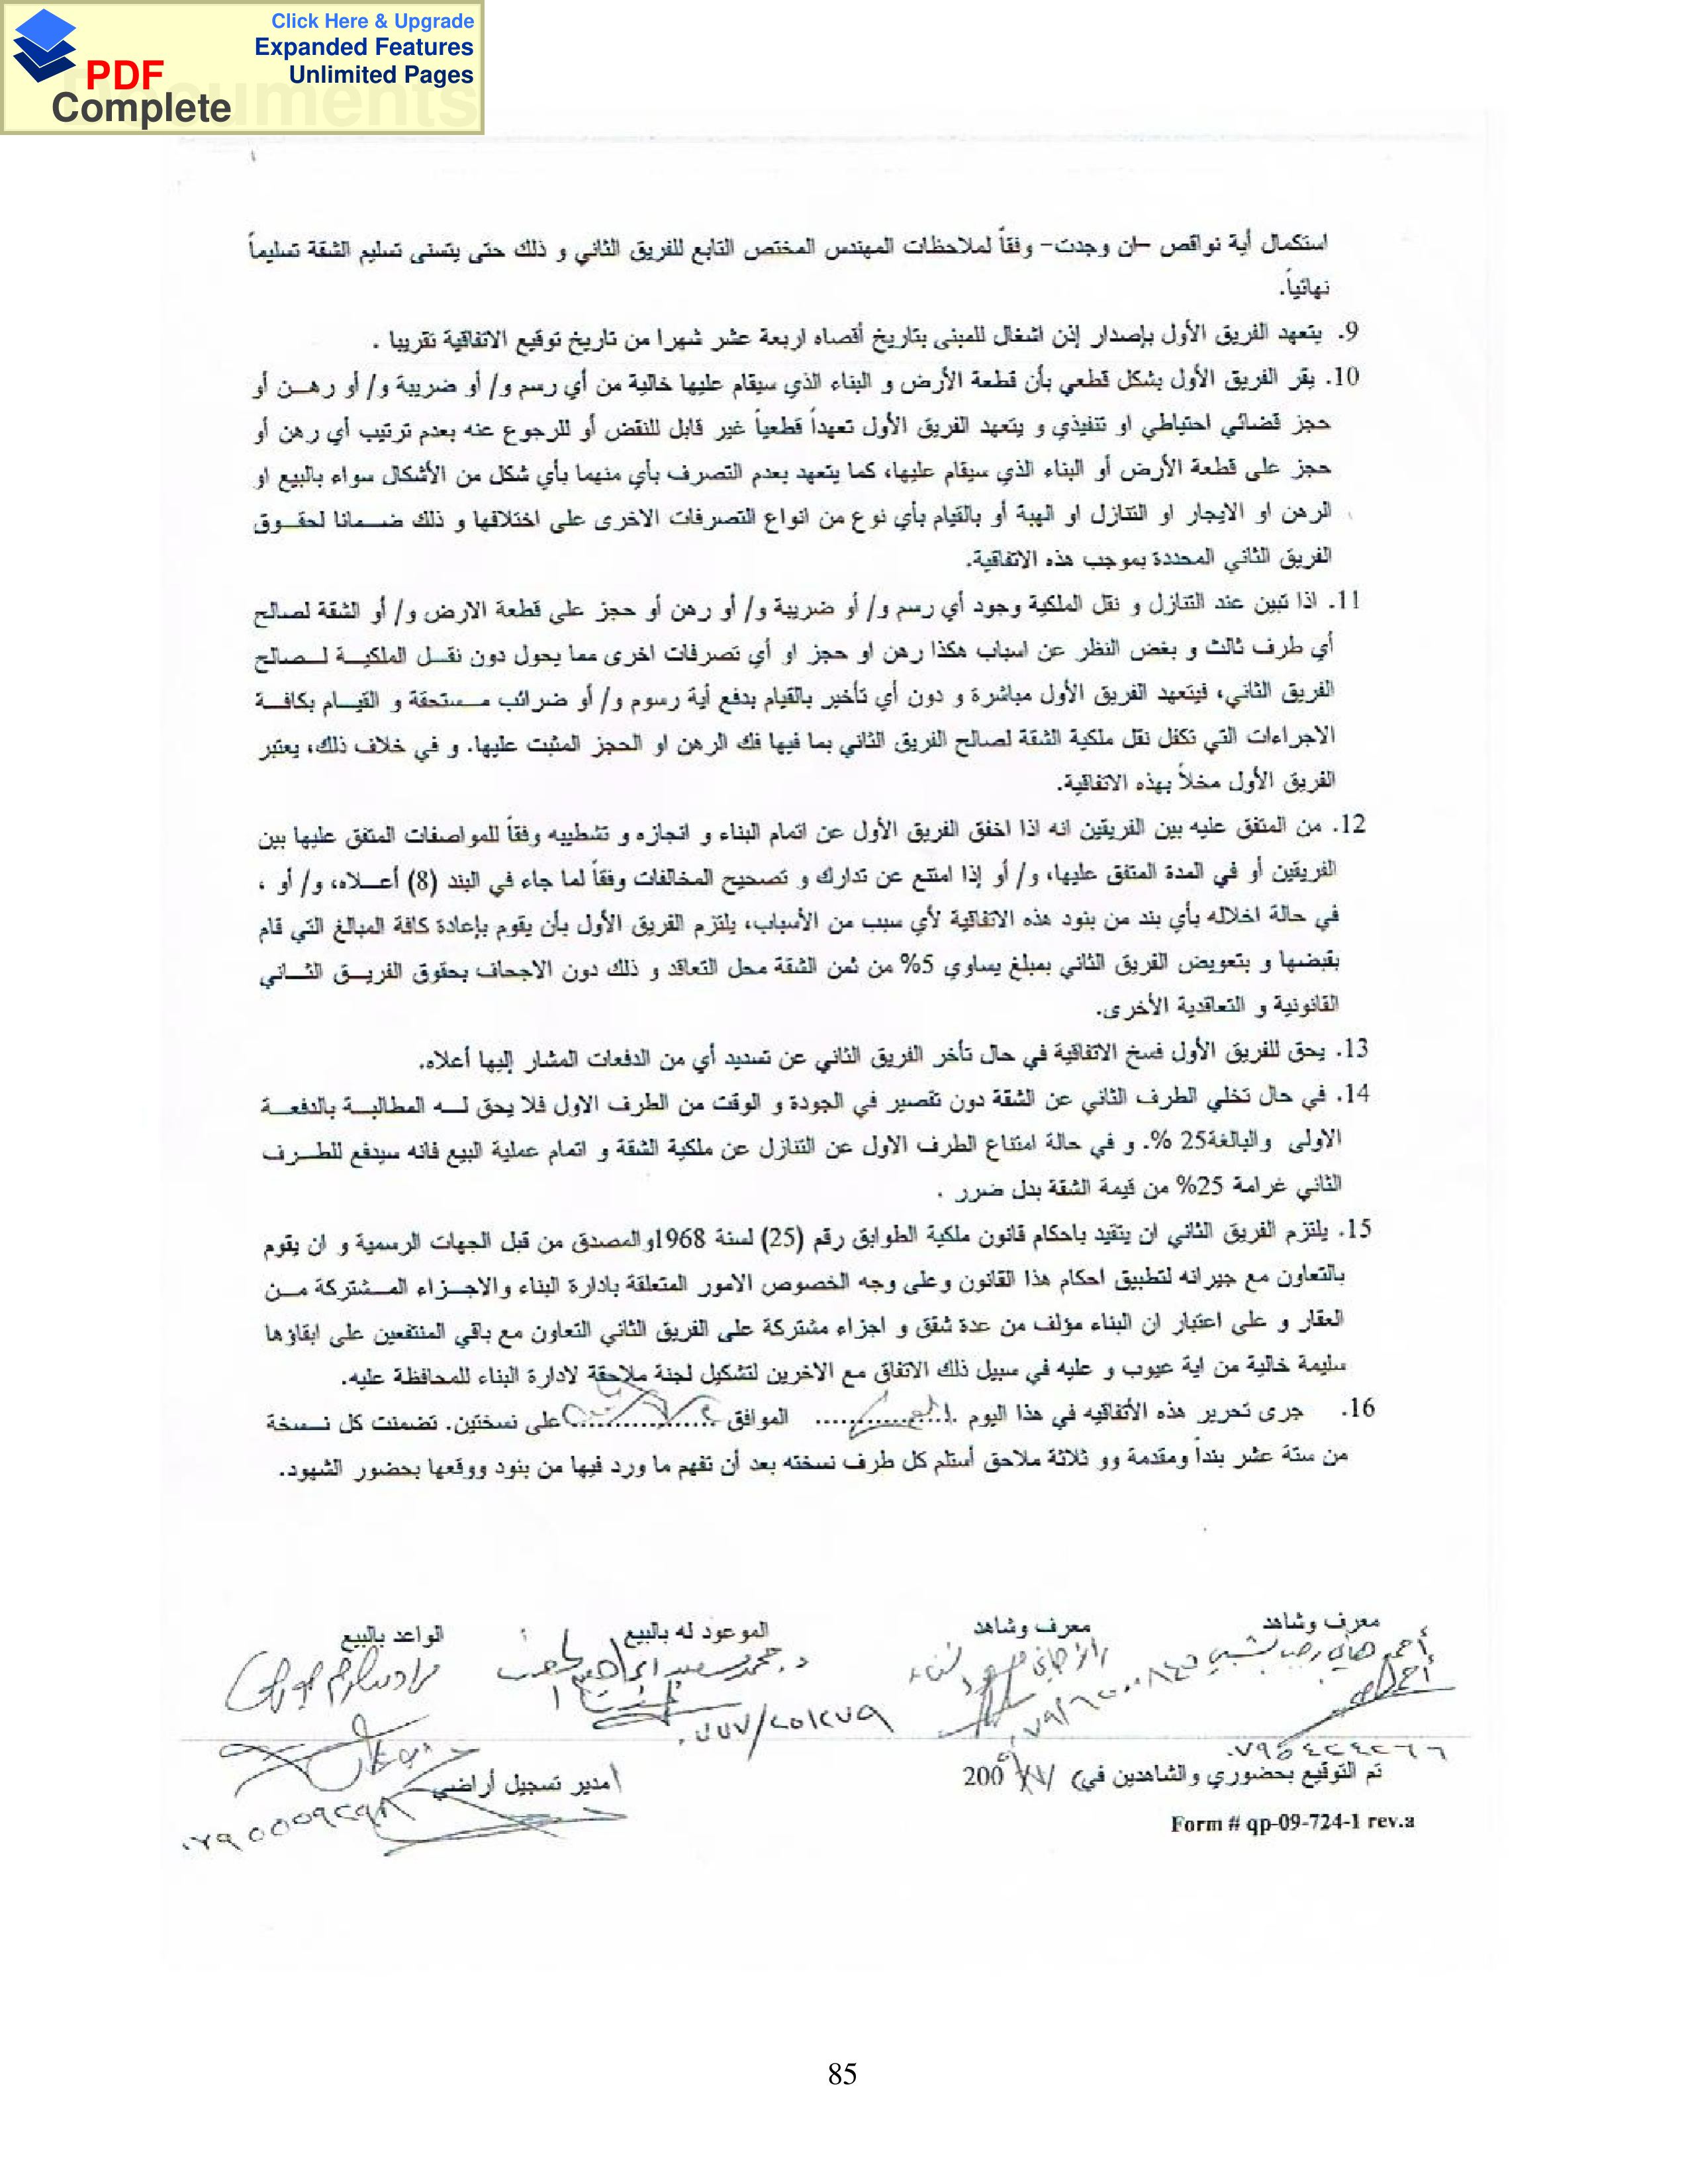 Click Here & Upgrade
Expanded Features
Unlimited Pages
PDF
Complete
Documents
استكمال أية نواقص –ان وجدت- وفقاً لملاحظات المهندس المختص التابع للفريق الثاني و ذلك حتى يتسنى تسليم الشقة تسليماً
نهائياً.
9. يتعهد الفريق الأول بإصدار إذن اشغال للمبنى بتاريخ أقصاه اربعة عشر شهرا من تاريخ توقيع الاتفاقية تقريبا .
10. يقر الفريق الأول بشكل قطعي بأن قطعة الأرض و البناء الذي سيقام عليها خالية من أي رسم و/ أو ضريبة و/ أو رهـــن أو
حجز قضائي احتياطي او تنفيذي و يتعهد الفريق الأول تعهداً قطعياً غير قابل للنقض أو للرجوع عنه بعدم ترتيب أي رهن أو
حجز على قطعة الأرض أو البناء الذي سيقام عليها، كما يتعهد بعدم التصرف بأي منهما بأي شكل من الأشكال سواء بالبيع او
الرهن او الايجار او التنازل او الهبة أو بالقيام بأي نوع من انواع التصرفات الاخرى على اختلافها و ذلك ضـــمانا لحقـــوق
الفريق الثاني المحددة بموجب هذه الاتفاقية.
11. اذا تبين عند التنازل و نقل الملكية وجود أي رسم و/ أو ضريبة و/ أو رهن أو حجز على قطعة الارض و/ أو الشقة لصالح
أي طرف ثالث و بغض النظر عن اسباب هكذا رهن او حجز او أي تصرفات اخرى مما يحول دون نقـــل الملكيـــة لـــصالح
الفريق الثاني، فيتعهد الفريق الأول مباشرة و دون أي تأخير بالقيام بدفع أية رسوم و/ أو ضرائب مـــستحقة و القيـــام بكافـــة
الاجراءات التي تكفل نقل ملكية الشقة لصالح الفريق الثاني بما فيها فك الرهن او الحجز المثبت عليها. و في خلاف ذلك، يعتبر
الفريق الأول مخلاً بهذه الاتفاقية.
12. من المتفق عليه بين الفريقين انه اذا اخفق الفريق الأول عن اتمام البناء و انجازه و تشطيبه وفقاً للمواصفات المتفق عليها بين
الفريقين أو في المدة المتفق عليها، و/ أو إذا امتنع عن تدارك و تصحيح المخالفات وفقاً لما جاء في البند (8) أعـــلاه، و/ أو ،
في حالة اخلاله بأي بند من بنود هذه الاتفاقية لأي سبب من الأسباب، يلتزم الفريق الأول بأن يقوم بإعادة كافة المبالغ التي قام
بقبضها و بتعويض الفريق الثاني بمبلغ يساوي 5% من ثمن الشقة محل التعاقد و ذلك دون الاجحاف بحقوق الفريـــق الثـــاني
القانونية و التعاقدية الأخرى.
13. يحق للفريق الأول فسخ الاتفاقية في حال تأخر الفريق الثاني عن تسديد أي من الدفعات المشار إليها أعلاه.
14. في حال تخلي الطرف الثاني عن الشقة دون تقصير في الجودة و الوقت من الطرف الاول فلا يحق لـــه المطالبـــة بالدفعـــة
الاولى والبالغة25 %. و في حالة امتناع الطرف الاول عن التنازل عن ملكية الشقة و اتمام عملية البيع فانه سيدفع للطـــرف
الثاني غرامة 25% من قيمة الشقة بدل ضرر .
15. يلتزم الفريق الثاني ان يتقيد باحكام قانون ملكية الطوابق رقم (25) لسنة 1968والمصدق من قبل الجهات الرسمية و ان يقوم
بالتعاون مع جيرانه لتطبيق احكام هذا القانون وعلى وجه الخصوص الامور المتعلقة بادارة البناء والاجـــزاء المـــشتركة مـــن
العقار و على اعتبار ان البناء مؤلف من عدة شقق و اجزاء مشتركة على الفريق الثاني التعاون مع باقي المنتفعين على ابقاؤها
سليمة خالية من اية عيوب و عليه في سبيل ذلك الاتفاق مع الاخرين لتشكيل لجنة ملاحقة لادارة البناء للمحافظة عليه.
16. جرى تحرير هذه الأتفاقيه في هذا اليوم .................... الموافق .................... على نسختين. تضمنت كل نـــسخة
من ستة عشر بنداً ومقدمة وو ثلاثة ملاحق أستلم كل طرف نسخته بعد أن تفهم ما ورد فيها من بنود ووقعها بحضور الشهود.
معرف وشاهد معرف وشاهد الموعود له بالبيع الواعد بالبيع
أحمد هاني رجب د. محمد سعيد ابراهيم
٠٧٧٧/٤٥١٢٧٩
تم التوقيع بحضوري والشاهدين في 200
مدير تسجيل أراضي
Form # qp-09-724-1 rev.a
85